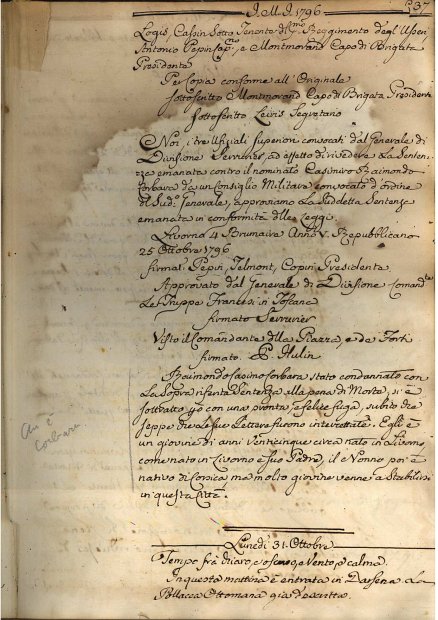 J. M. J. 1796
537
Logis, Cassin Sotto Tenente del Reggimento degli Usseri
Antonio Pepin Capno, e Montmorand Capo di Brigata
Presidente
Per Copia conforme all'Originale
sottoscritto Montmorand Capo di Brigata Presidente
sottoscritto Leiris Segretario
Noi, i tre Ufiziali Superiori convocati dal Generale di
Divisione Serrurier, ad effetto di rivedere La Senten-
za emanata contro il nominato Casimiro Raimondo
Corbara da un Consiglio Militare convocato d'ordine
del Sudo Generale, approviamo La Suddetta Sentenza
emanata in conformità delle Leggi
Livorno 4 Brumaire Anno V. Repubblicano
25 Ottobre 1796
firmati Pepin, Telmont, Copin Presidente
Approvato dal Generale di Divisione Comandte
Le Truppe Francesi in Toscana
firmato Serrurier
Visto il Comandante della Piazza, e de Forti
firmato P. Hulin
Raimondo Casimo Corbara stato condannato con
La Sopra riferita Sentenza alla pena di Morte, si è
sottratto con una pronta, e felice fuga, subito che
seppe che Le Sue Lettere furono intercettate. Egli è
un giovine di anni venticinque circa nato in Livorno,
come nato in Livorno è suo Padre, il Nonno poi è
nativo di Corsica ma molto giovine venne a Stabilirsi
in questa Città.
Corbara
Lunedì 31. Ottobre
Tempo frà chiaro, e oscuro, e Vento, e calma.
In questa mattina è entrata in Darsena La
Pollacca Ottomana già descritta.